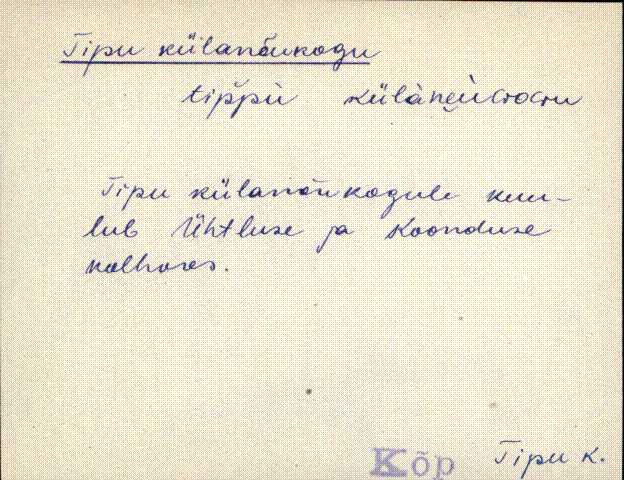 Tipu külanõukogu
Tipu külanõukogule kuu-
lub Ühtluse ja Koonduse
kolhoos.
Kõp Tipu k.